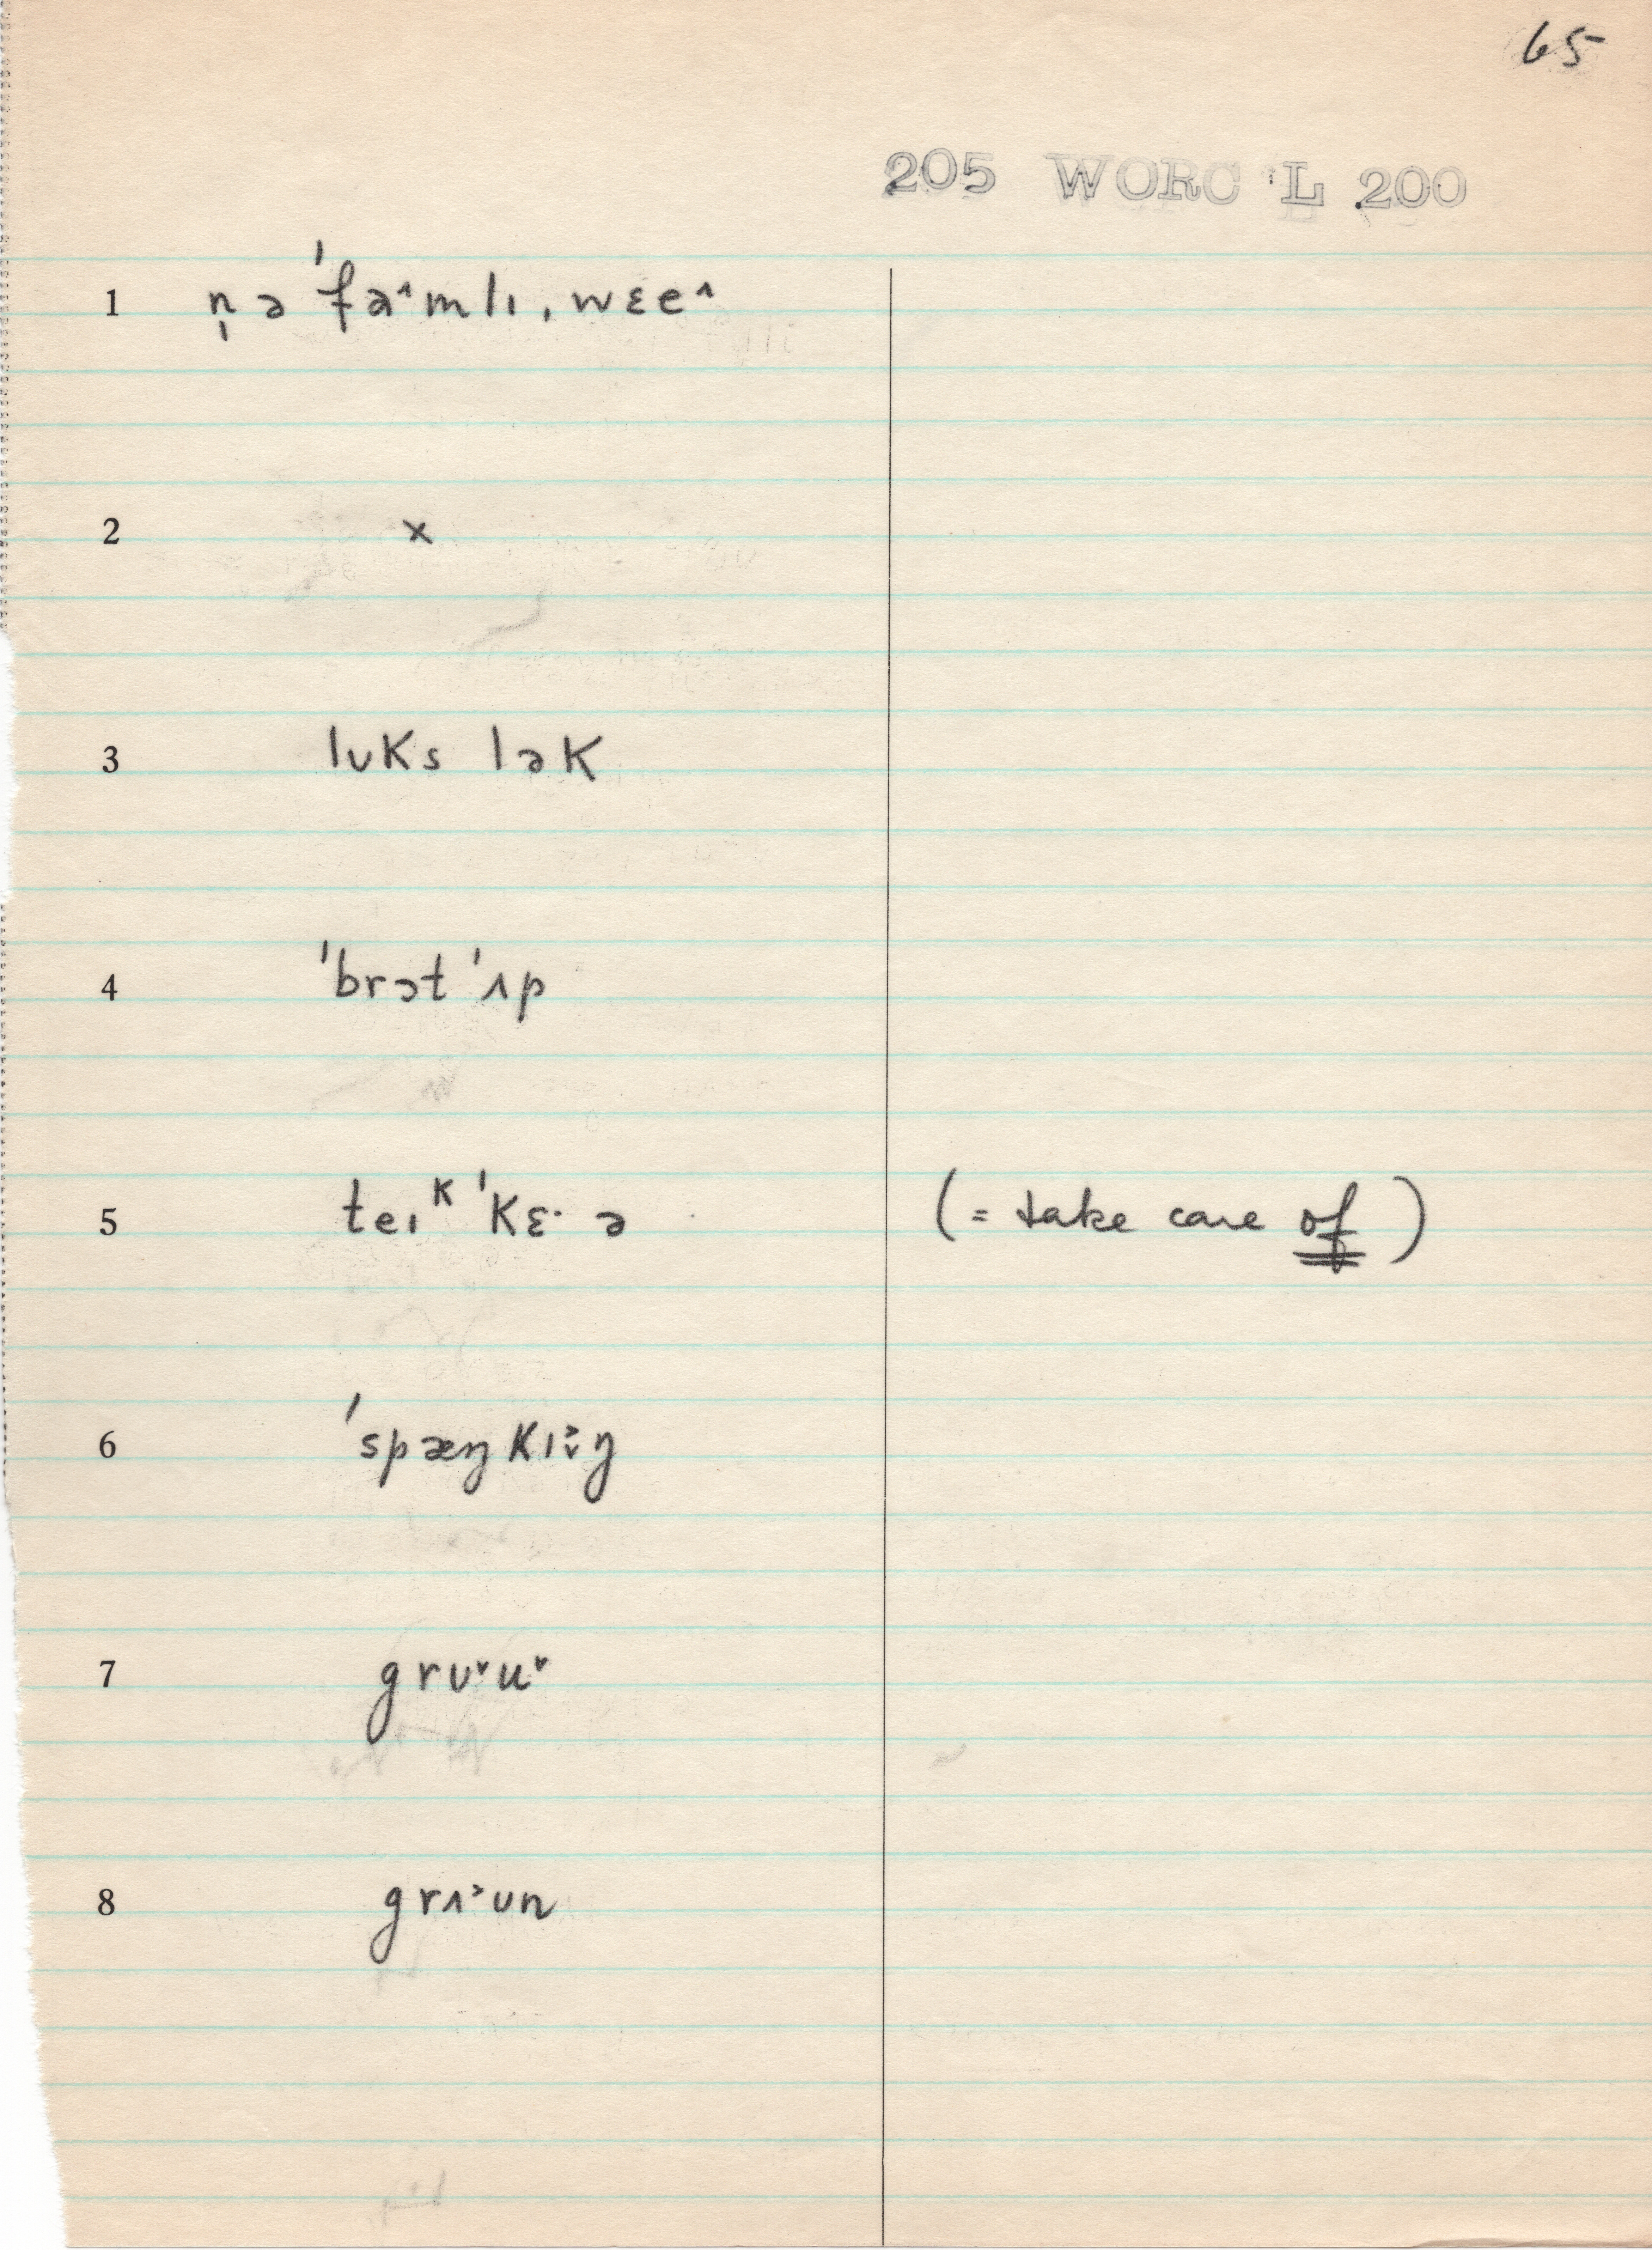 65
205 WORC L 200
1 n̩ ə ˈfaˆmlɪ ˌwɛeˆ
2 x
3 lʊks lək
4 ˈbrɔt ˈʌp
5 teɪᵏ ˈkɛ· ə (= take care of)
6 ˈspæŋkɪˇ˃ŋ
7 grʊˇuˇ
8 grʌ˃ʊn